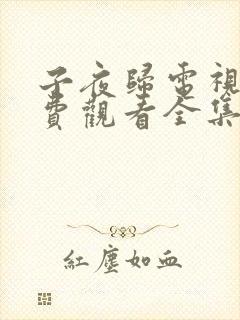 子夜歸電視
費觀看全集
紅塵如血